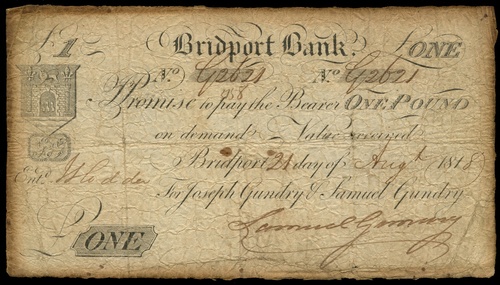 £1 Bridport Bank. £ONE
No. G2621 No. G2621
I Promise to pay the Bearer ONE POUND
on demand Value received
Bridport 21 day of Augt. 1818
Entd. Hodder For Joseph Gundry & Samuel Gundry
£ONE Samuel Gundry